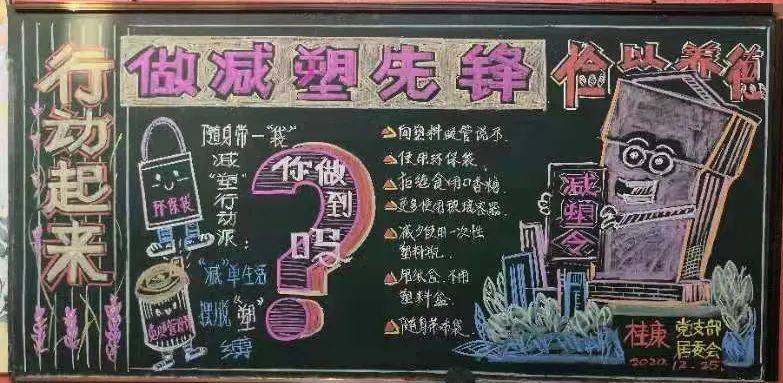 行动起来
做减塑先锋
俭以养德
随身带一"袋"
减"塑"行动派：
"减"单生活
摆脱"塑"缚
环保袋
你做到吗?
向塑料吸管说不.
使用环保袋.
拒绝食用口香糖.
更多使用玻璃容器.
减少使用一次性
塑料瓶.
用纸盒.不用
塑料盒.
随身带布袋.
减塑令
桂康
党支部
居委会
2020.12.25.